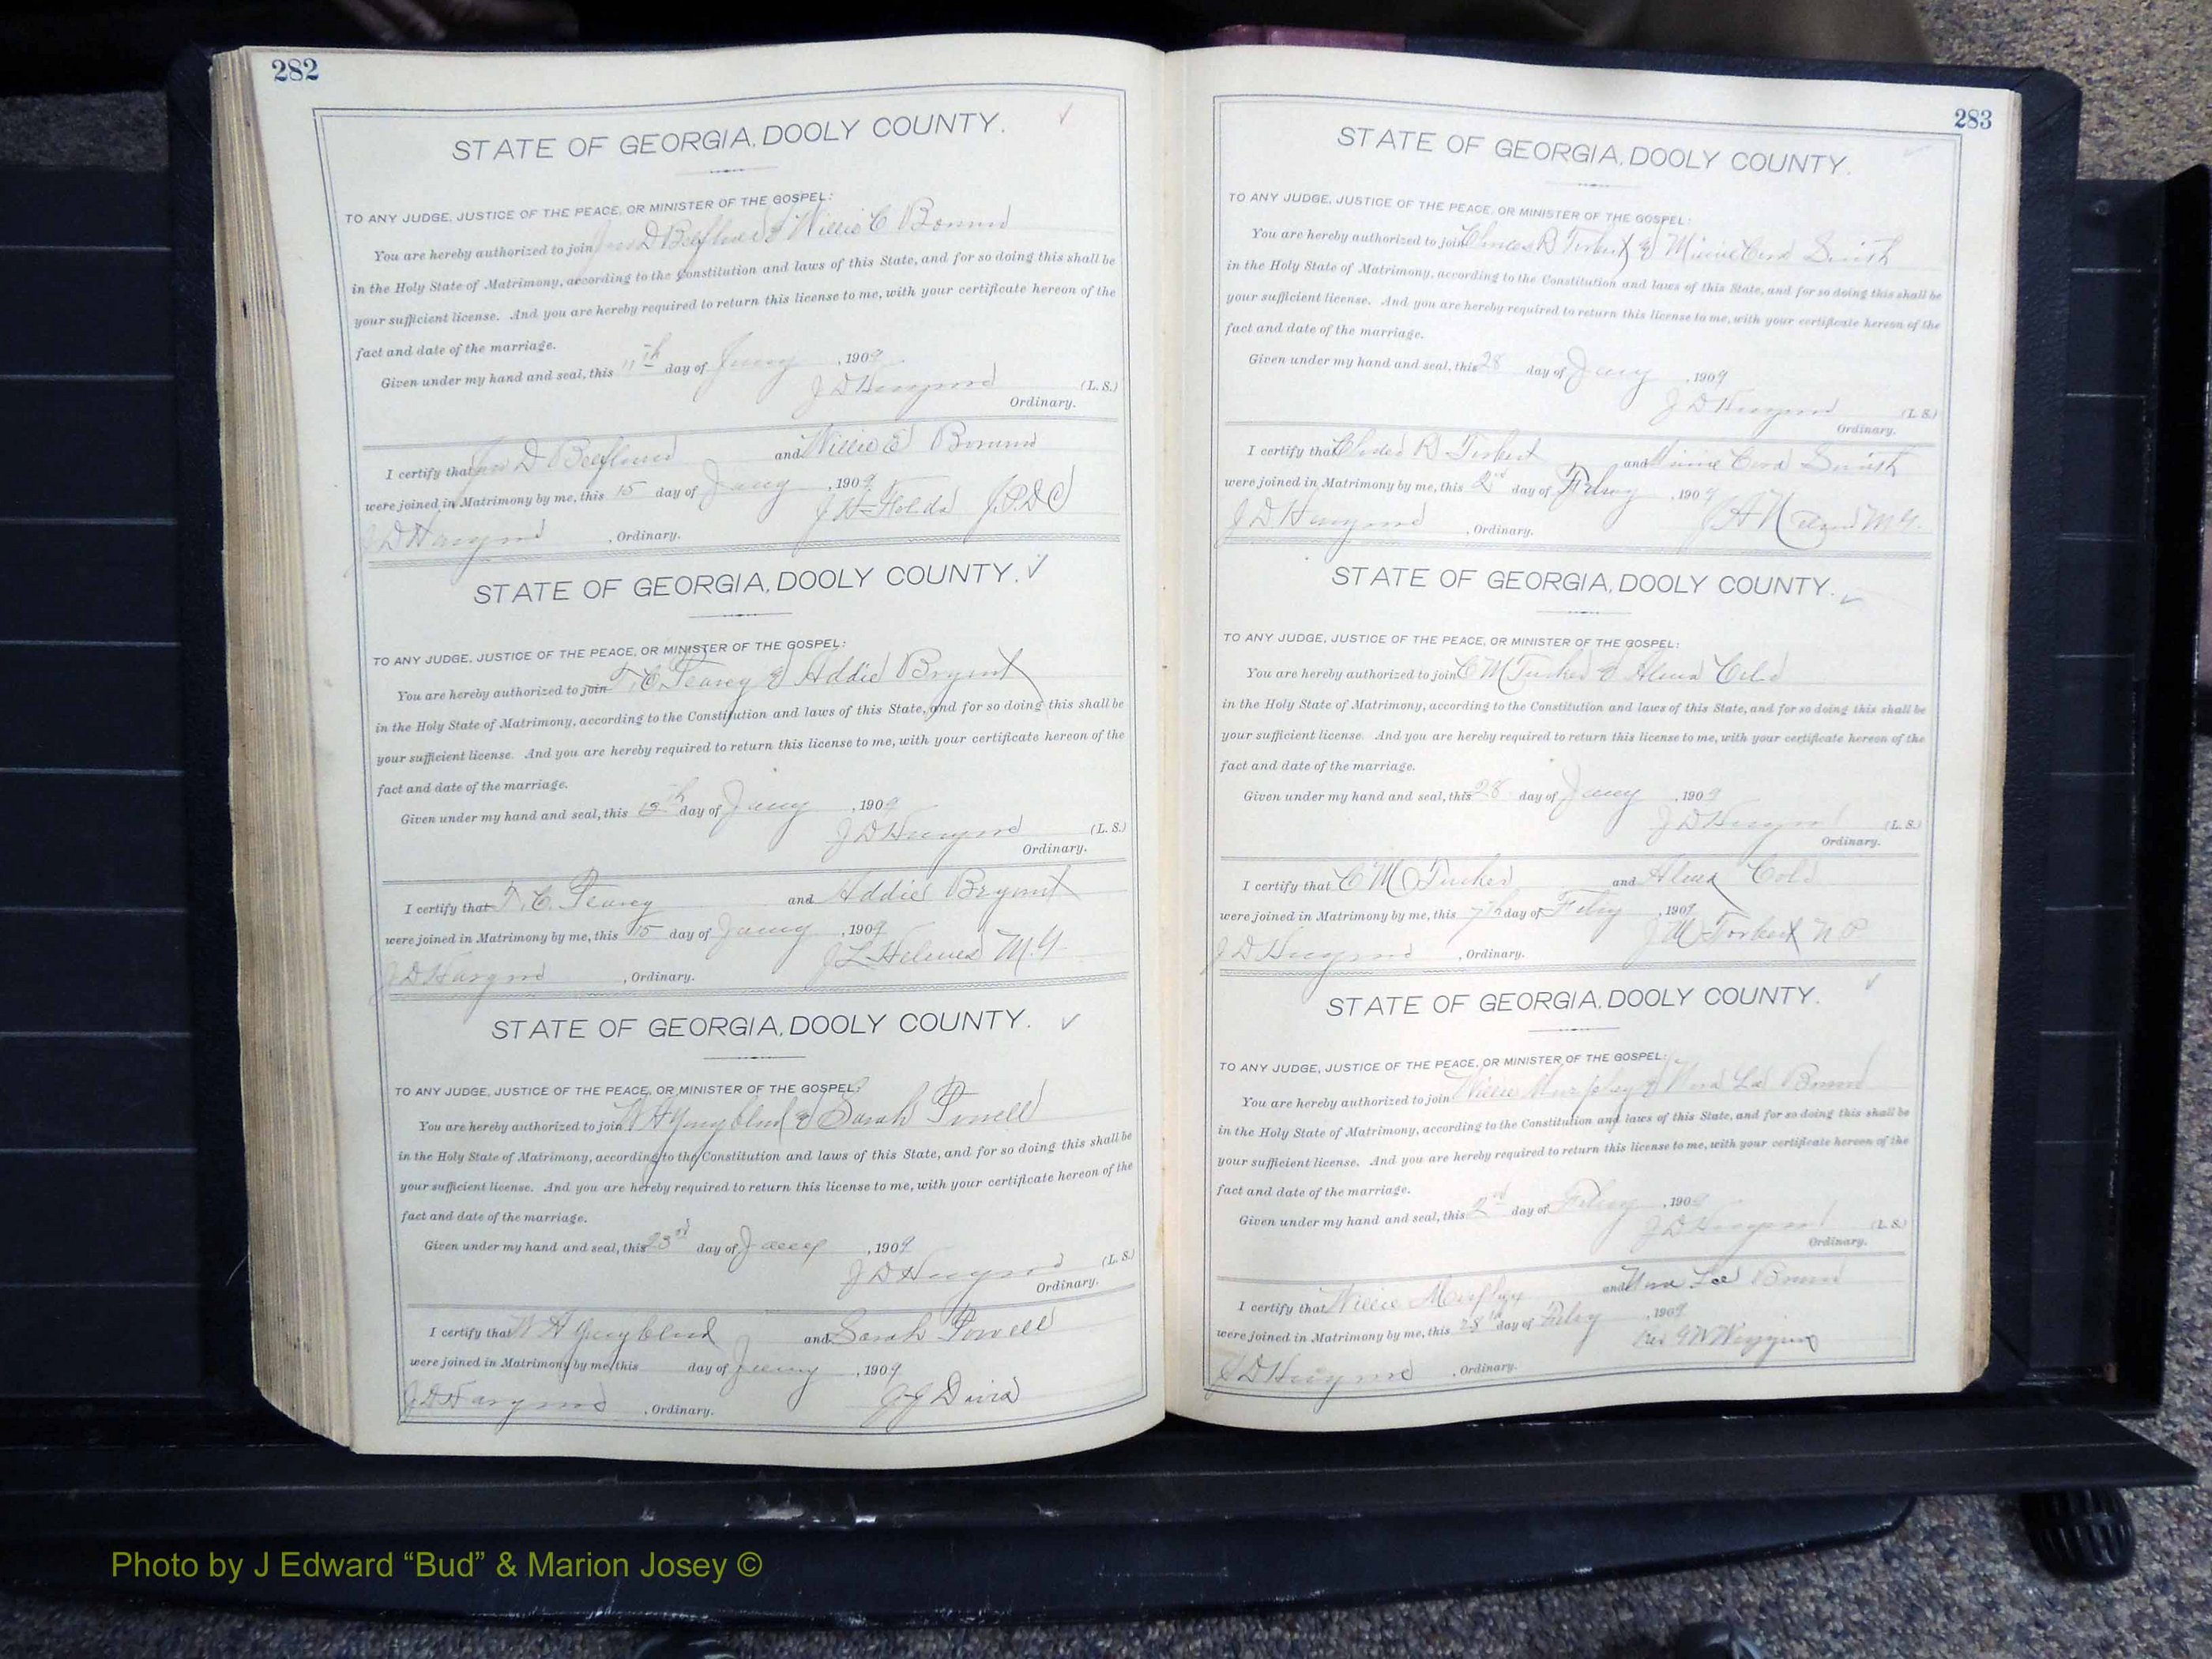 282
STATE OF GEORGIA, DOOLY COUNTY.
TO ANY JUDGE, JUSTICE OF THE PEACE, OR MINISTER OF THE GOSPEL:
You are hereby authorized to join D & Willie C
in the Holy State of Matrimony, according to the Constitution and laws of this State, and for so doing this shall be
your sufficient license. And you are hereby required to return this license to me, with your certificate hereon of the
fact and date of the marriage.
Given under my hand and seal, this 11th day of Jany , 1909
J D (L. S.)
Ordinary.
I certify that D and Willie
were joined in Matrimony by me, this 15 day of Jany , 1909
J D , Ordinary. J H
STATE OF GEORGIA, DOOLY COUNTY.
TO ANY JUDGE, JUSTICE OF THE PEACE, OR MINISTER OF THE GOSPEL:
You are hereby authorized to join T. C. Pearcy & Addie Bryant
in the Holy State of Matrimony, according to the Constitution and laws of this State, and for so doing this shall be
your sufficient license. And you are hereby required to return this license to me, with your certificate hereon of the
fact and date of the marriage.
Given under my hand and seal, this day of Jany , 1909
J D (L. S.)
Ordinary.
I certify that T. C. Pearcy and Addie Bryant
were joined in Matrimony by me, this 15 day of Jany , 1909
J D , Ordinary. J L Helmes M. G.
STATE OF GEORGIA, DOOLY COUNTY.
TO ANY JUDGE, JUSTICE OF THE PEACE, OR MINISTER OF THE GOSPEL:
You are hereby authorized to join W A Youngblood & Sarah Powell
in the Holy State of Matrimony, according to the Constitution and laws of this State, and for so doing this shall be
your sufficient license. And you are hereby required to return this license to me, with your certificate hereon of the
fact and date of the marriage.
Given under my hand and seal, this 23rd day of Jany , 1909
J D (L. S.)
Ordinary.
I certify that W A and Sarah Powell
were joined in Matrimony by me, this day of Jany , 1909
J D , Ordinary. Davis
283
STATE OF GEORGIA, DOOLY COUNTY.
TO ANY JUDGE, JUSTICE OF THE PEACE, OR MINISTER OF THE GOSPEL:
You are hereby authorized to join R & Minnie Smith
in the Holy State of Matrimony, according to the Constitution and laws of this State, and for so doing this shall be
your sufficient license. And you are hereby required to return this license to me, with your certificate hereon of the
fact and date of the marriage.
Given under my hand and seal, this 28 day of Jany , 1909
J D (L. S.)
Ordinary.
I certify that R and Minnie Smith
were joined in Matrimony by me, this 2nd day of Feby , 1909
J D , Ordinary. M G.
STATE OF GEORGIA, DOOLY COUNTY.
TO ANY JUDGE, JUSTICE OF THE PEACE, OR MINISTER OF THE GOSPEL:
You are hereby authorized to join C M Tucker & Alma Cole
in the Holy State of Matrimony, according to the Constitution and laws of this State, and for so doing this shall be
your sufficient license. And you are hereby required to return this license to me, with your certificate hereon of the
fact and date of the marriage.
Given under my hand and seal, this 28 day of Jany , 1909
J D (L. S.)
Ordinary.
I certify that C M Tucker and Alma Cole
were joined in Matrimony by me, this 7th day of Feby , 1909
J D , Ordinary. J M Torbert N P
STATE OF GEORGIA, DOOLY COUNTY.
TO ANY JUDGE, JUSTICE OF THE PEACE, OR MINISTER OF THE GOSPEL:
You are hereby authorized to join Willie Murphey & Lee
in the Holy State of Matrimony, according to the Constitution and laws of this State, and for so doing this shall be
your sufficient license. And you are hereby required to return this license to me, with your certificate hereon of the
fact and date of the marriage.
Given under my hand and seal, this 2nd day of Feby , 1909
J D (L. S.)
Ordinary.
I certify that Willie and Lee
were joined in Matrimony by me, this 28th day of Feby , 1909
J D , Ordinary. Rev G W Wiggins
Photo by J Edward “Bud” & Marion Josey ©